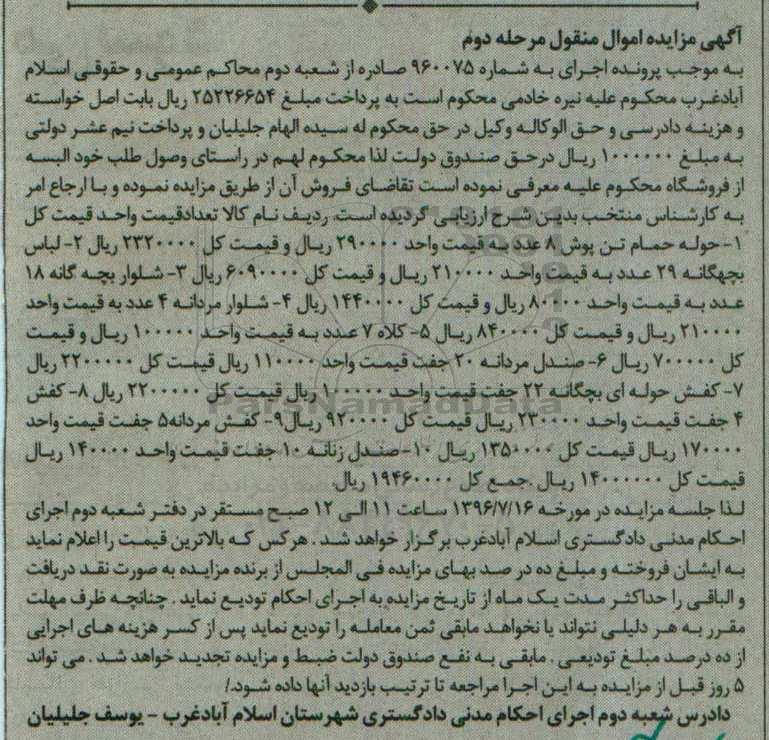 آگهی مزایده اموال منقول مرحله دوم
به موجب پرونده اجرای به شماره ۹۶۰۰۷۵ صادره از شعبه دوم محاکم عمومی و حقوقی اسلام
آبادغرب محکوم علیه نیره خادمی محکوم است به پرداخت مبلغ ۲۵۲۲۶۶۵۴ ریال بابت اصل خواسته
و هزینه دادرسی و حق الوکاله وکیل در حق محکوم له سیده الهام جلیلیان و پرداخت نیم عشر دولتی
به مبلغ ۱۰۰۰۰۰۰ ریال درحق صندوق دولت لذا محکوم لهم در راستای وصول طلب خود البسه
از فروشگاه محکوم علیه معرفی نموده است تقاضای فروش آن از طریق مزایده نموده و با ارجاع امر
به کارشناس منتخب بدین شرح ارزیابی گردیده است. ردیف نام کالا تعدادقیمت واحد قیمت کل
۱- حوله حمام تن پوش ۸ عدد به قیمت واحد ۲۹۰۰۰۰ ریال و قیمت کل ۲۳۲۰۰۰۰ ریال ۲- لباس
بچهگانه ۲۹ عدد به قیمت واحد ۲۱۰۰۰۰ ریال و قیمت کل ۶۰۹۰۰۰۰ ریال ۳- شلوار بچه گانه ۱۸
عدد به قیمت واحد ۸۰۰۰۰ ریال و قیمت کل ۱۴۴۰۰۰۰ ریال ۴- شلوار مردانه ۴ عدد به قیمت واحد
۲۱۰۰۰۰ ریال و قیمت کل ۸۴۰۰۰۰ ریال ۵- کلاه ۷ عدد به قیمت واحد ۱۰۰۰۰۰ ریال و قیمت
کل ۷۰۰۰۰۰ ریال ۶- صندل مردانه ۲۰ جفت قیمت واحد ۱۱۰۰۰۰ ریال قیمت کل ۲۲۰۰۰۰۰ ریال
۷- کفش حوله ای بچگانه ۲۲ جفت قیمت واحد ۱۰۰۰۰۰ ریال قیمت کل ۲۲۰۰۰۰۰ ریال ۸- کفش
۴ جفت قیمت واحد ۲۳۰۰۰۰ ریال قیمت کل ۹۲۰۰۰۰ ریال۹- کفش مردانه۵ جفت قیمت واحد
ParsNamadData
۱۷۰۰۰۰ ریال قیمت کل ۱۳۵۰۰۰۰ ریال ۱۰- صندل زنانه ۱۰ جفت قیمت واحد ۱۴۰۰۰۰ ریال
قیمت کل ۱۴۰۰۰۰۰۰ ریال .جمع کل ۱۹۴۶۰۰۰۰ ریال.
لذا جلسه مزایده در مورخه ۱۳۹۶/۷/۱۶ ساعت ۱۱ الی ۱۲ صبح مستقر در دفتر شعبه دوم اجرای
احکام مدنی دادگستری اسلام آبادغرب برگزار خواهد شد . هرکس که بالاترین قیمت را اعلام نماید
به ایشان فروخته و مبلغ ده در صد بهای مزایده فی المجلس از برنده مزایده به صورت نقد دریافت
و الباقی را حداکثر مدت یک ماه از تاریخ مزایده به اجرای احکام تودیع نماید . چنانچه ظرف مهلت
مقرر به هر دلیلی نتواند یا نخواهد مابقی ثمن معامله را تودیع نماید پس از کسر هزینه های اجرایی
از ده درصد مبلغ تودیعی . مابقی به نفع صندوق دولت ضبط و مزایده تجدید خواهد شد . می تواند
۵ روز قبل از مزایده به این اجرا مراجعه تا ترتیب بازدید آنها داده شود./
دادرس شعبه دوم اجرای احکام مدنی دادگستری شهرستان اسلام آبادغرب - یوسف جلیلیان